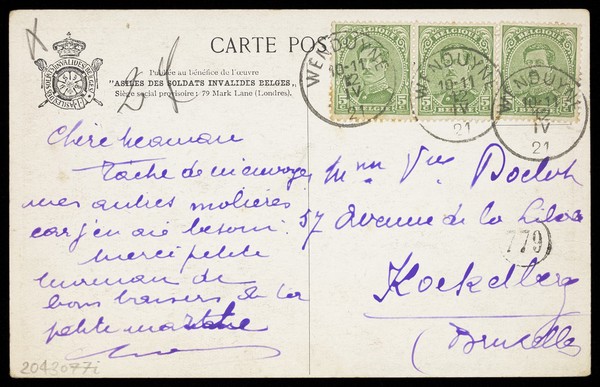 CARTE POS
Publiée au bénéfice de l'œuvre
"ASILES DES SOLDATS INVALIDES BELGES,,
Siège social provisoire : 79 Mark Lane (Londres).
24
BELGIQUE BELGIQUE BELGIQUE
WENDUYNE
10-11
12
IV
21
WENDUYN
10-11
12
IV
21
WENDUYN
10-11
12
IV
21
Chère maman
Tâche de m'envoyer
mes autres molières
car j'en ai besoin.
Merci petite
maman de
bons baisers de ta
petite
Mme Vve
37 Avenue de la
779
Koekelberg
(Bruxelles
2043077i